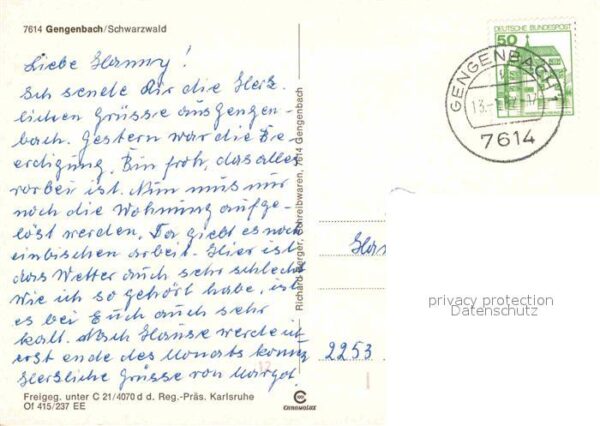 7614 Gengenbach/Schwarzwald
Liebe Hanny!
Ich sende Dir die Herz-
lichen Grüsse aus Gengen-
bach. Gestern war die Be-
erdigung. Bin froh, das alles
vorbei ist. Nun mus nur
noch die Wohnung aufge-
löst werden. Da giebt es noch
einbischen arbeit. Hier ist
das Wetter auch sehr schlecht.
Wie ich so gehört habe, ist
es bei Euch auch sehr
kalt. Nach Hause werde ich
erst ende des Monats kommen
Herzliche Grüsse von Margot.
Freigeg. unter C 21/4070 d d. Reg.-Präs. Karlsruhe
Of 415/237 EE
Richard Berger, Schreibwaren, 7614 Gengenbach
CHROMOLUX
DEUTSCHE BUNDESPOST
50
GENGENBACH 1
7614
Han
2253
privacy protection
Datenschutz